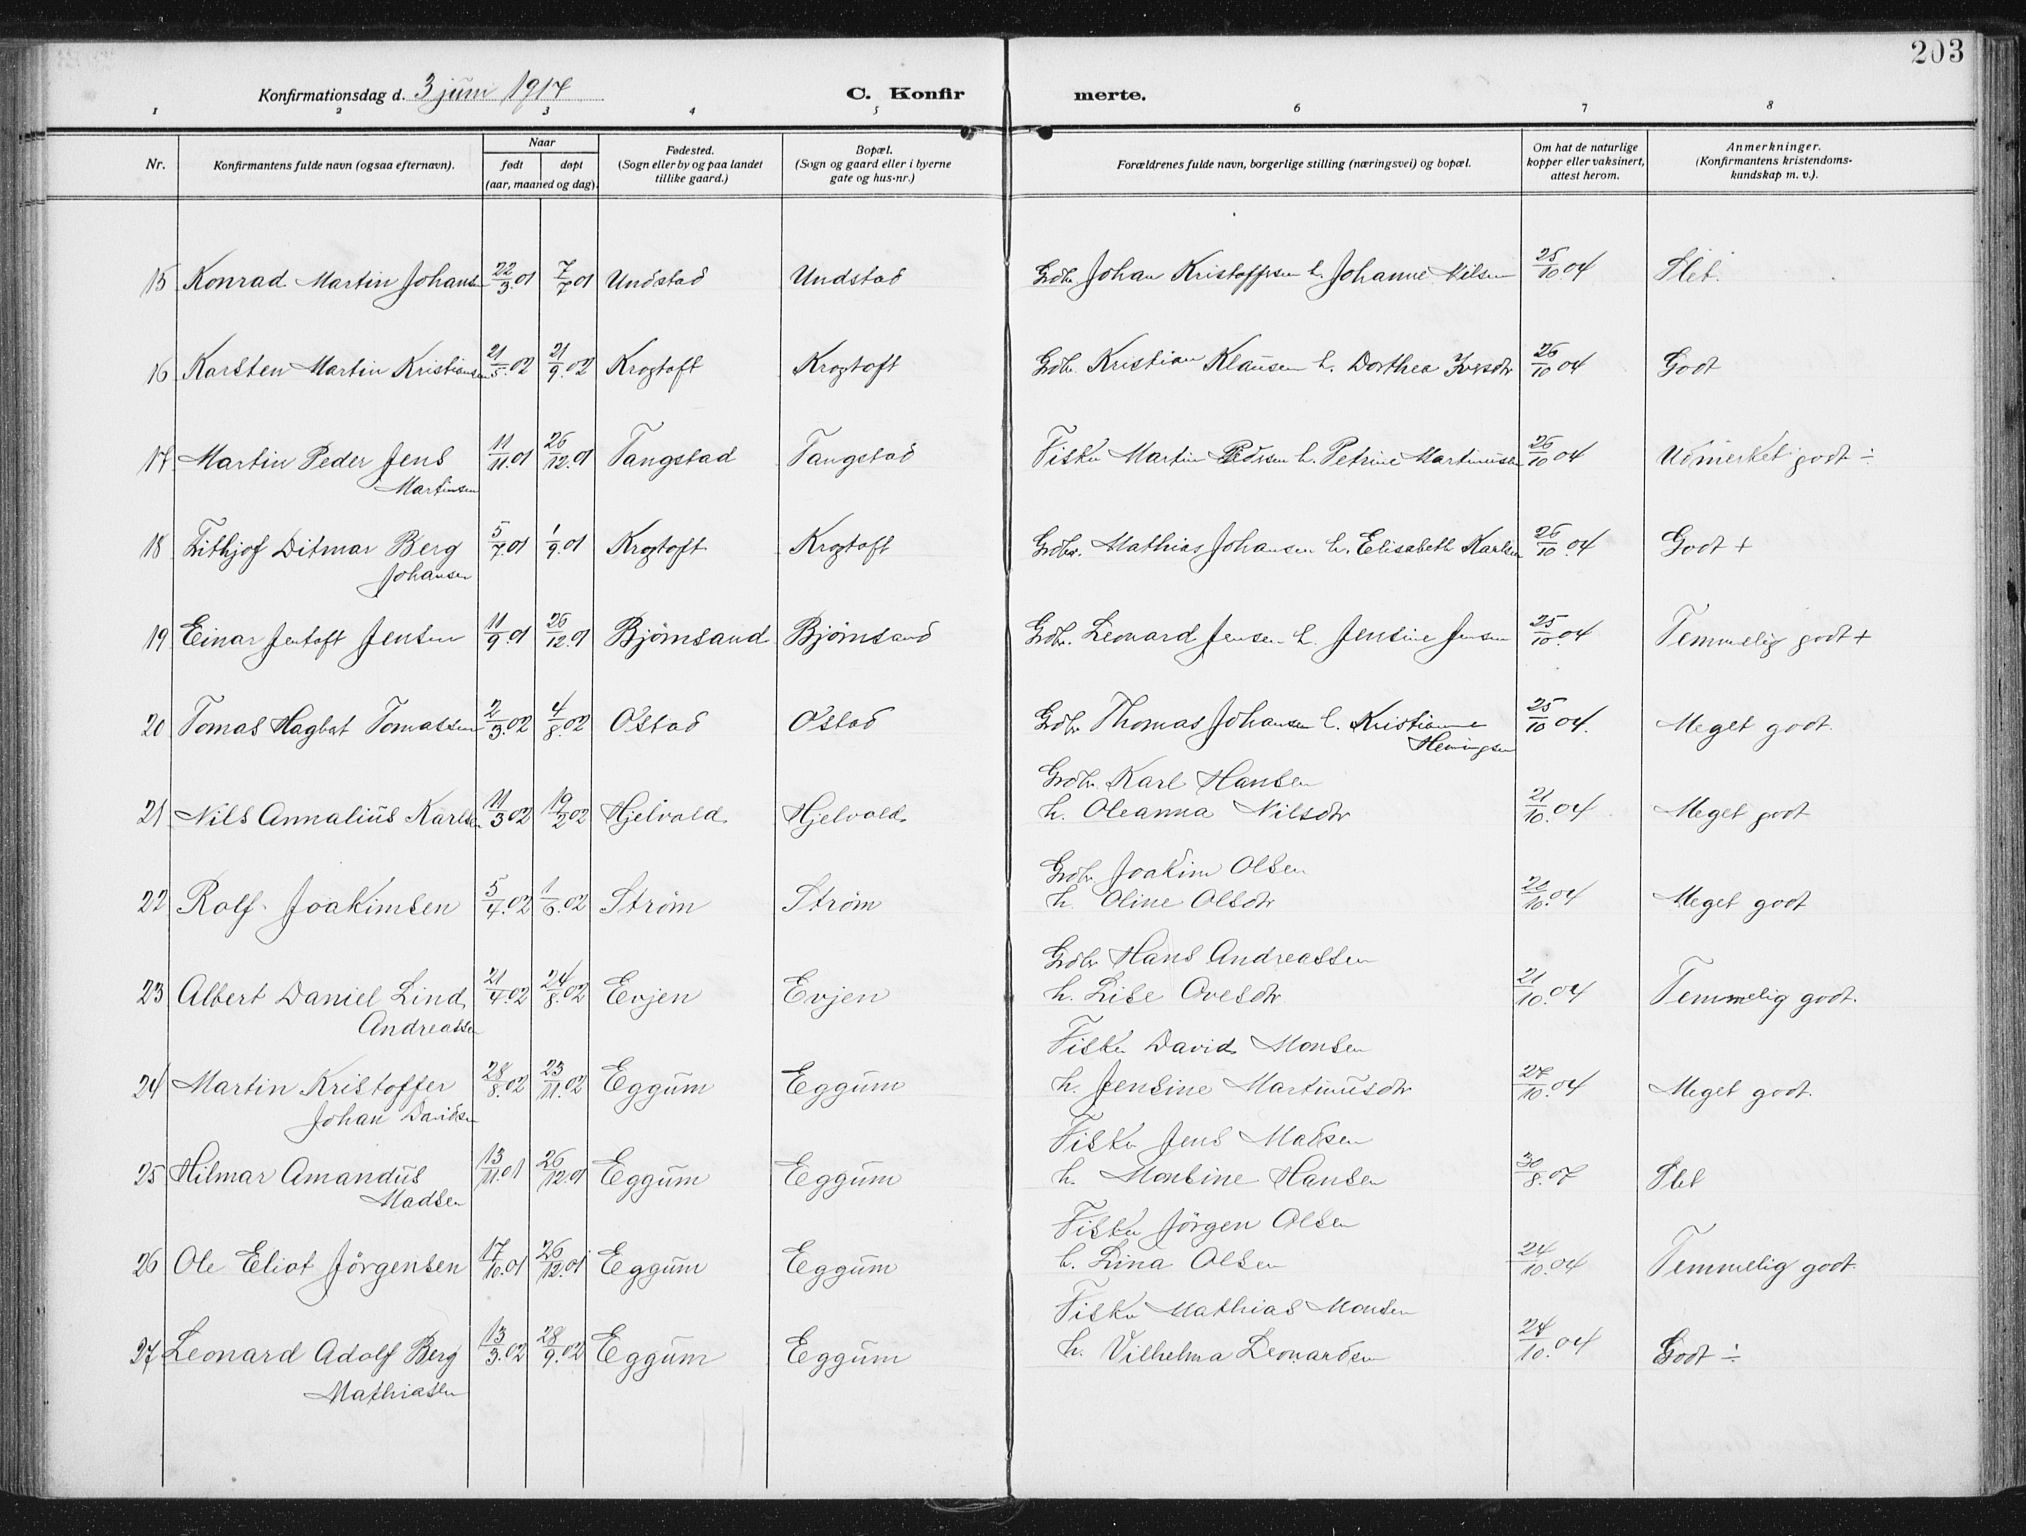 203
Konfirmationsdag d. 3 juni 1917
C. Konfirmerte.
1 2 3 4 5 6 7 8
Nr.
Konfirmantens fulde navn (ogsaa efternavn).
Naar
født
døpt
(aar, maaned og dag).
Fødested.
(Sogn eller by og paa landet
tillike gaard.)
Bopæl.
(Sogn og gaard eller i byerne
gate og hus-nr.)
Forældrenes fulde navn, borgerlige stilling (næringsvei) og bopæl.
Om hat de naturlige
kopper eller vaksinert,
attest herom.
Anmerkninger.
(Konfirmantens kristendoms-
kundskap m. v.).
15 Konrad Martin Johansen 22/3.01 7/7 01 Undstad Undstad Grdbr. Johan Kristoffersen h. Johanne Nilsen 25/10.04 Slet.
16 Karsten Martin Kristiansen 21/5.02 21/9.02 Krogtoft Krogtoft Grdbr. Kristian Klausen h. Dorthea Iversdtr 26/10 04 Godt
17 Martin Peder Jens 11/11.01 26/12.01 Tangstad Tangstad Fisker Martin Pedersen h. Petrine Martinusen 26/10 04 Udmerket godt ÷
Martinsen
18 Fithjof Ditmar Berg 5/7.01 1/9.01 Krogtoft Krogtoft Grdbr. Mathias Johansen h. Elisabeth Karlsen 26/10.04 Godt +
Johansen
19 Einar Jentoft Jensen 11/9.01 26/12.01 Bjørnsand Bjørnsand Grdbr. Leonard Jensen h. Jensine Jensen 25/10.04 Temmelig godt +
20 Tomas Hagbat Tomassen 2/3.02 4/8.02 Ostad Ostad Grdbr Thomas Johansen h. Kristianne 25/10 04. Meget godt.
Hemingsen
Grdbr. Karl Hansen
21 Nils Annalius Karlsen 11/3 02 19/2 02 Hjelvold Hjelvold h. Oleanna Nilsdtr 21/10.04 Meget godt
Grdbr Joakim Olsen
22 Rolf Joakimsen 5/4.02 1/6.02 Strøm Strøm h. Oline Olsdtr 04 Meget godt
Grdbr Hans Andreassen
23 Albert Daniel Lind 21/4.02 24/8.02 Evjen Evjen h. Lise Ovesdtr 21/10.04 Temmelig godt.
Andreassen
Fisker David Monsen
24 Martin Kristoffer 28/8.02 23/11.02 Eggum Eggum h. Jensine Martinusdtr 27/10.04 Meget godt.
Johan Davidsen
Fisker Jens Madsen
25 Hilmar Amandus 13/11.01 26/12.01 Eggum Eggum h. Monsine Hansen 30/8.07 Slet
Madsen
Fisker Jörgen Olsen
26 Ole Eliot Jörgensen 17/10.01 26/12.01 Eggum Eggum h. Lina Olsen 24/10.04 Temmelig godt.
Fisker Mathias Monsen
27 Leonard Adolf Berg 13/3.02 28/9.02 Eggum Eggum h. Vilhelma Leonardsen 24/10.04 Godt ÷
Mathiassen